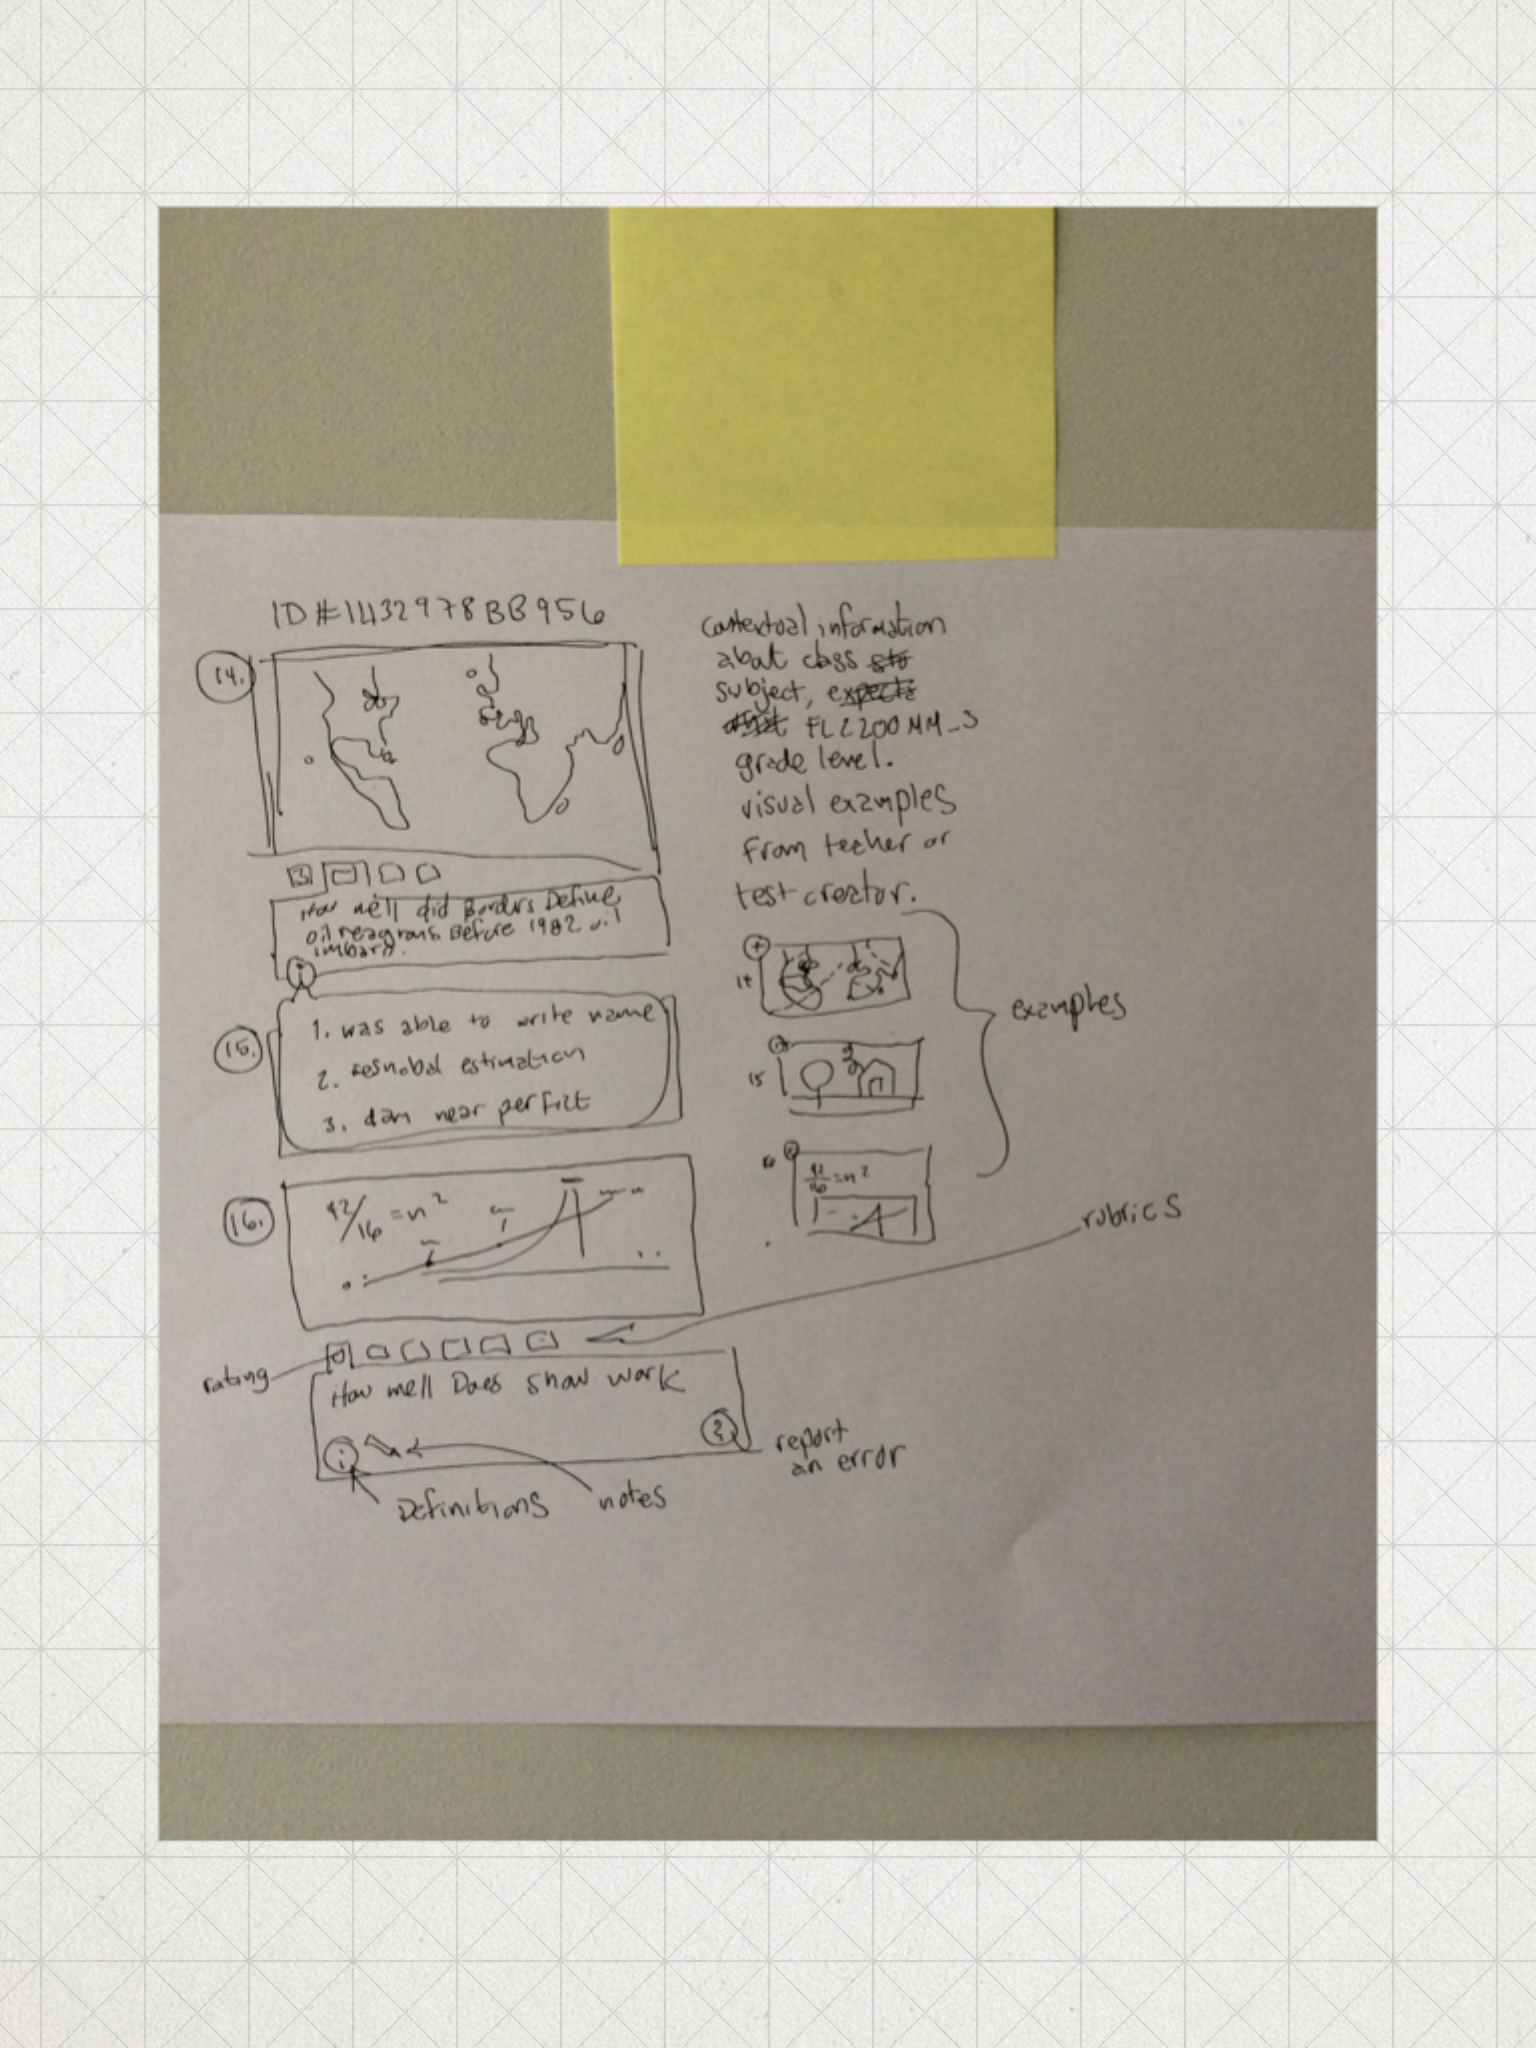 ID #1432978BB956
14.
How well did Borders Define
oil reagrons Before 1982 oil
imbard.
i
15.
1. was able to write name
2. resnobal estimation
3. dam near perfict
16.
42/16 = n²
rating
How well Does show work
i
?
Definitions
notes
report
an error
contextual information
about class
subject,
FL2200MM_3
grade level.
visual examples
from teacher or
test creator.
+
14
15
16
42/16 = n²
examples
rubrics